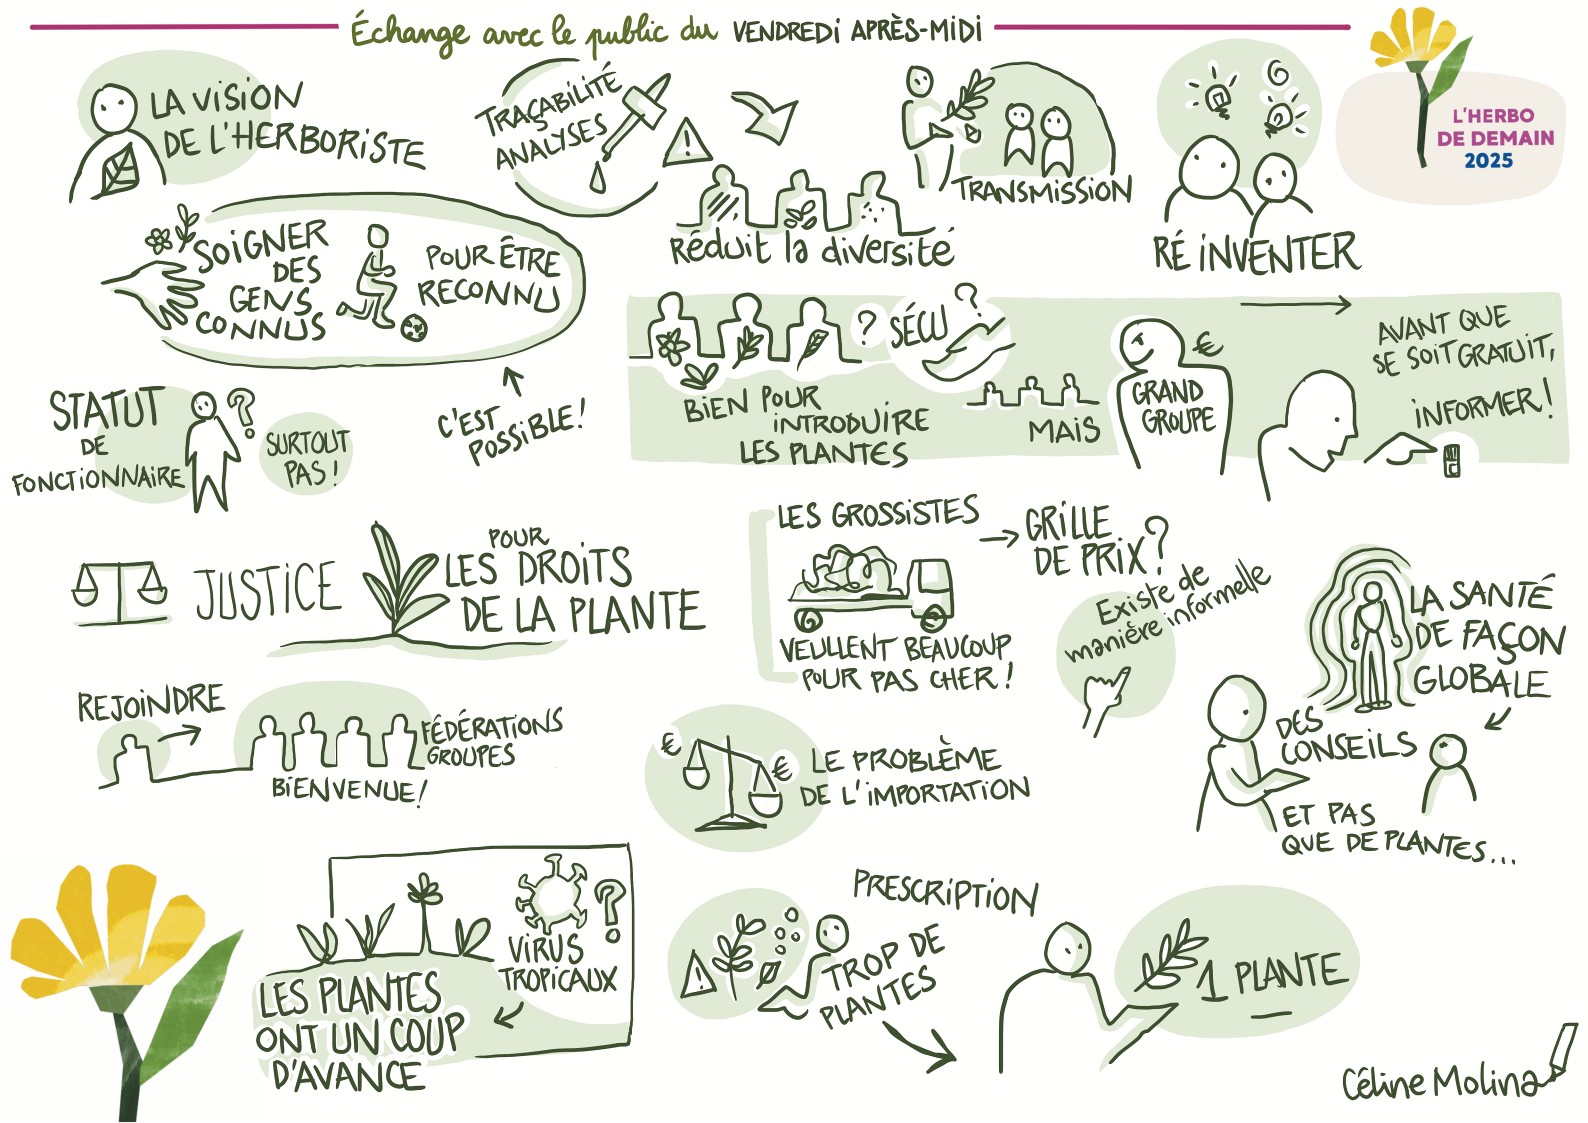 Échange avec le public du VENDREDI APRÈS-MIDI
L'HERBO
DE DEMAIN
2025
LA VISION
DE L'HERBORISTE
TRAÇABILITÉ
ANALYSES
!
Réduit la diversité
TRANSMISSION
RÉ INVENTER
SOIGNER
DES
GENS
CONNUS
POUR ÊTRE
RECONNU
C'EST
POSSIBLE!
STATUT
DE
FONCTIONNAIRE
?
SURTOUT
PAS!
? SÉCU ?
BIEN POUR
INTRODUIRE
LES PLANTES
MAIS
€
GRAND
GROUPE
AVANT QUE
SE SOIT GRATUIT,
INFORMER!
JUSTICE
POUR
LES DROITS
DE LA PLANTE
LES GROSSISTES
VEULLENT BEAUCOUP
POUR PAS CHER!
GRILLE
DE PRIX?
Existe de
manière informelle
LA SANTÉ
DE FAÇON
GLOBALE
DES
CONSEILS
ET PAS
QUE DE PLANTES...
REJOINDRE
FÉDÉRATIONS
GROUPES
BIENVENUE!
€
€
LE PROBLÈME
DE L'IMPORTATION
LES PLANTES
ONT UN COUP
D'AVANCE
?
VIRUS
TROPICAUX
PRESCRIPTION
!
TROP DE
PLANTES
1 PLANTE
Céline Molina